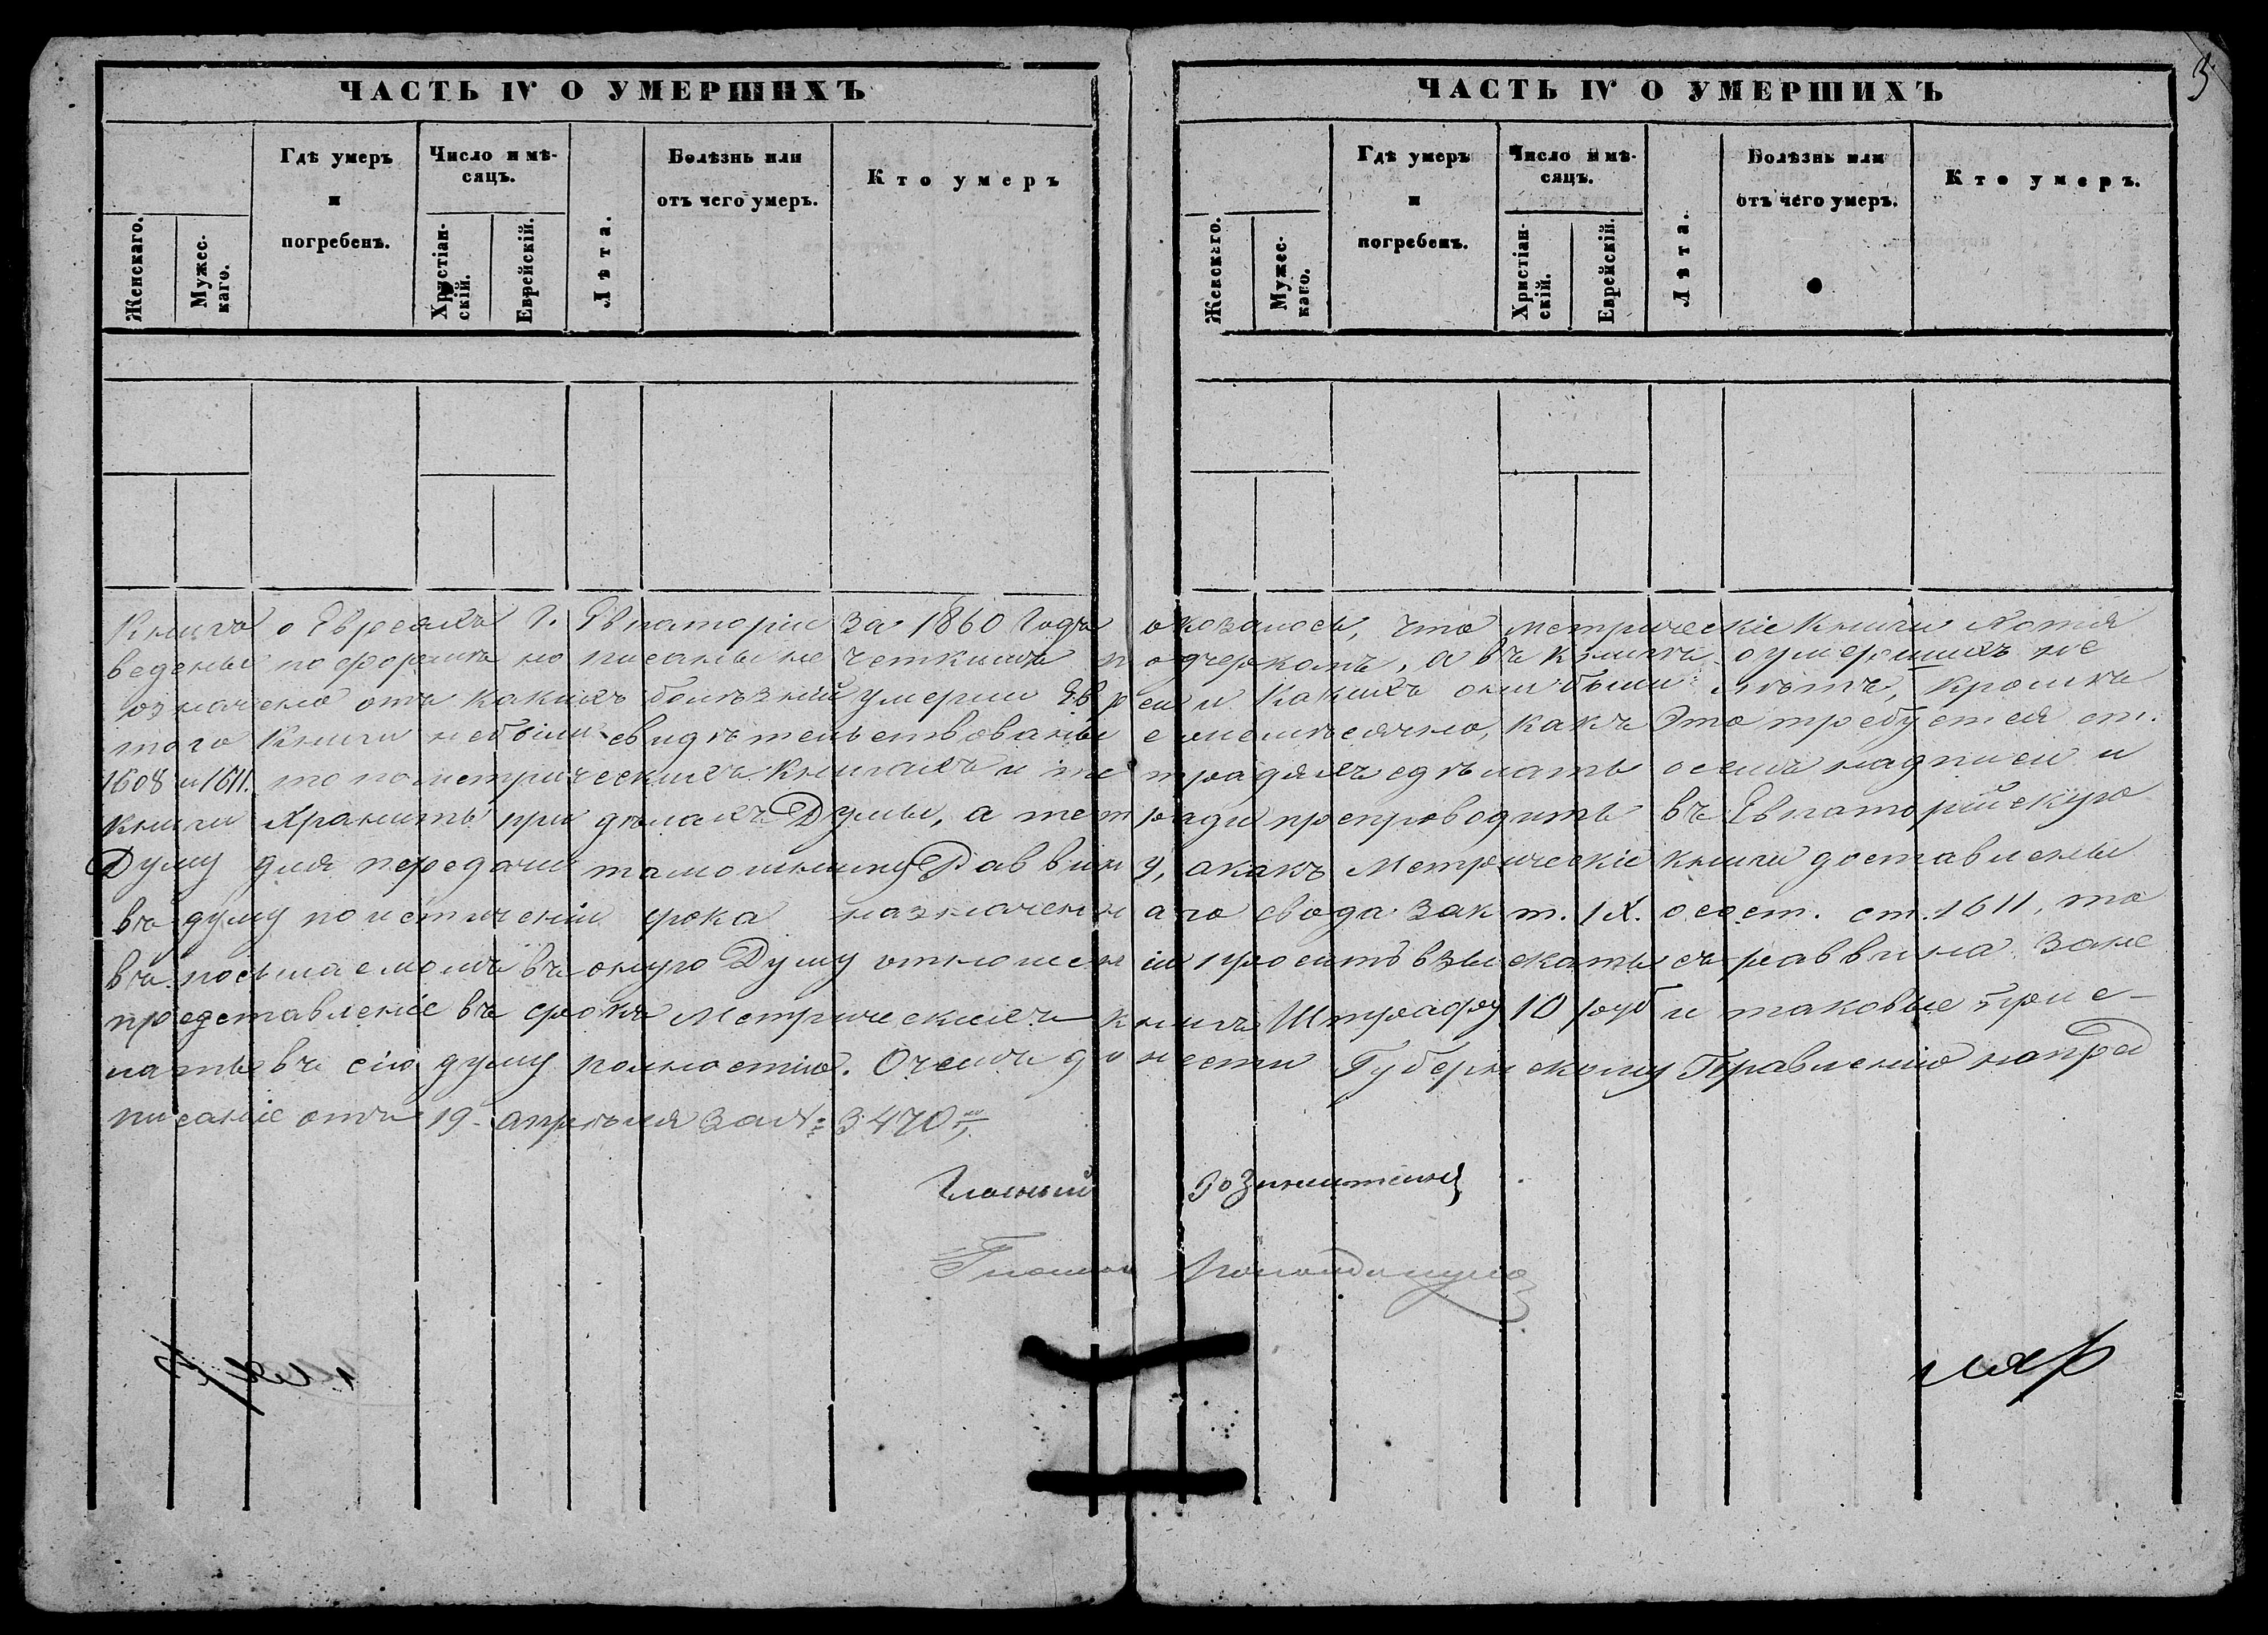 3
ЧАСТЬ IV О УМЕРШИХЪ
Женскаго.
Мужескаго.
Гдѣ умеръ
и
погребенъ.
Число и мѣ-
сяцъ.
Христіан-
скій.
Еврейскій.
Лѣта.
Болѣзнь или
отъ чего умеръ.
Кто умеръ
ЧАСТЬ IV О УМЕРШИХЪ
Женскаго.
Мужес-
каго.
Гдѣ умеръ
и
погребенъ.
Число и мѣ-
сяцъ.
Христіан-
скій.
Еврейскій.
Лѣта.
Болѣзнь или
отъ чего умеръ.
Кто умеръ.
Книгъ о Евреяхъ г. Евпаторіи за 1860 годъ оказалось, что метрическіе книги хотя
ведены по формѣ но писаны не четкимъ подчеркомъ, а въ книгѣ о умершихъ не
означено отъ какихъ болѣзній умерли Евреи и какихъ они были лѣтъ, кромѣ
того книги небыли свидѣтельствованы ежемѣсячно, какъ это требуется ст.
1608 и 1611. то по метрическихъ книгахъ и тетрадяхъ сдѣлать о семъ надписи и
книги хранить при дѣлахъ Думы, а тетради препроводить въ Евпаторійскую
Думу для передачи тамошнему Раввину, а какъ Метрическіе книги доставлены
въ думу по истеченіи срока назначеннаго свода зак. т. IX. о сост. ст. 1611, то
въ посылаемомъ въ оную Думу отношеніи просить взыскать съ раввина за не
представленіе въ срокъ Метрическихъ книгъ Штрафу 10 руб и таковые присе-
лать въ сію думу полностію. О чемъ донести Губернскому Правленію на пред
писаніе отъ 19 апрѣля за № 3470.
Гласный
Гласный
ляр